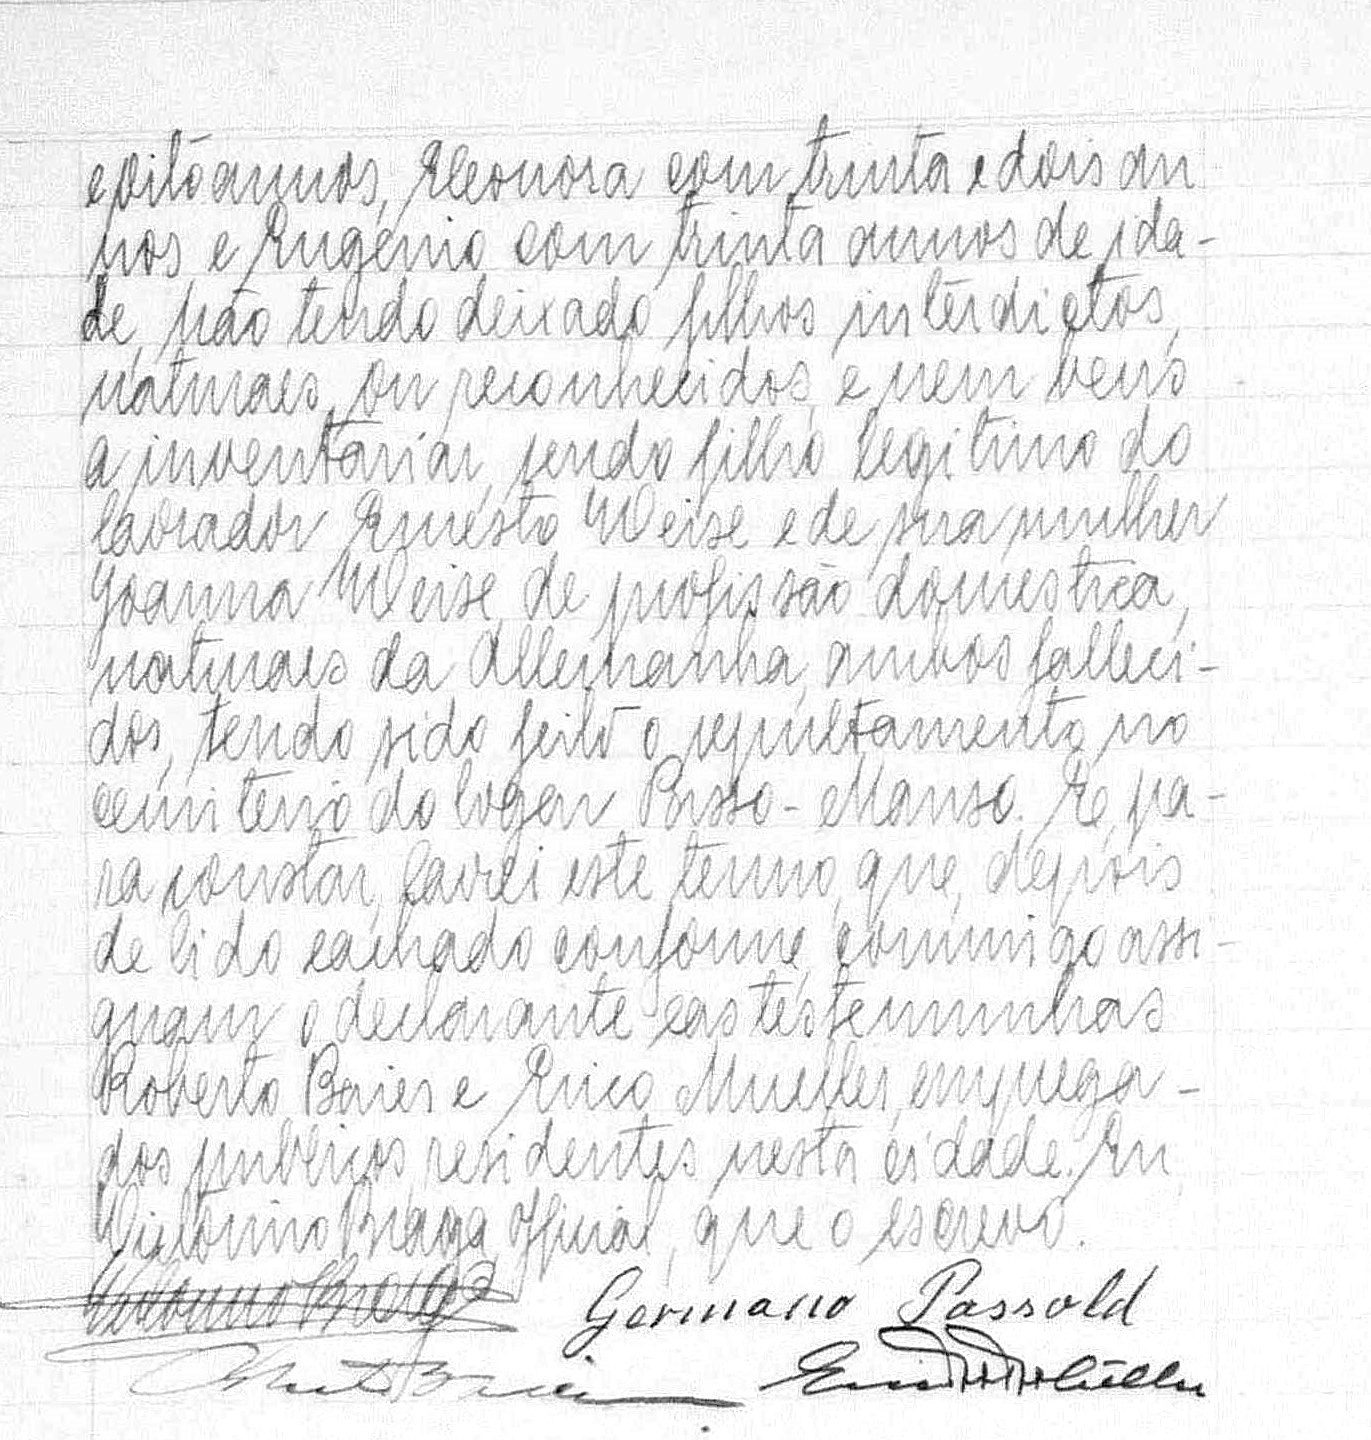 e oito annos, Eleonora com trinta e dois an
nos e Eugenio com trinta annos de ida-
de, não tendo deixado filhos interdictos,
naturaes, ou reconhecidos, e nem bens
a inventariar, sendo filho legitimo do
lavrador Ernesto Weise e de sua mulher
Joanna Weise, de profissão domestica,
naturaes da Allemanha, ambos falleci-
dos, tendo sido feito o sepultamento no
cemiterio do logar Passo-Manso. E, pa-
ra constar, lavrei este termo, que, depois
de lido e achado conforme, commigo assi-
gnam o declarante e as testemunhas
Roberto Baier e Erico Mueller, emprega-
dos publicos, residentes nesta cidade. Eu,
Victorino Braga, Official, que o escrevo.
Victorino Braga Germano Passold
Roberto Baier Erico Müller